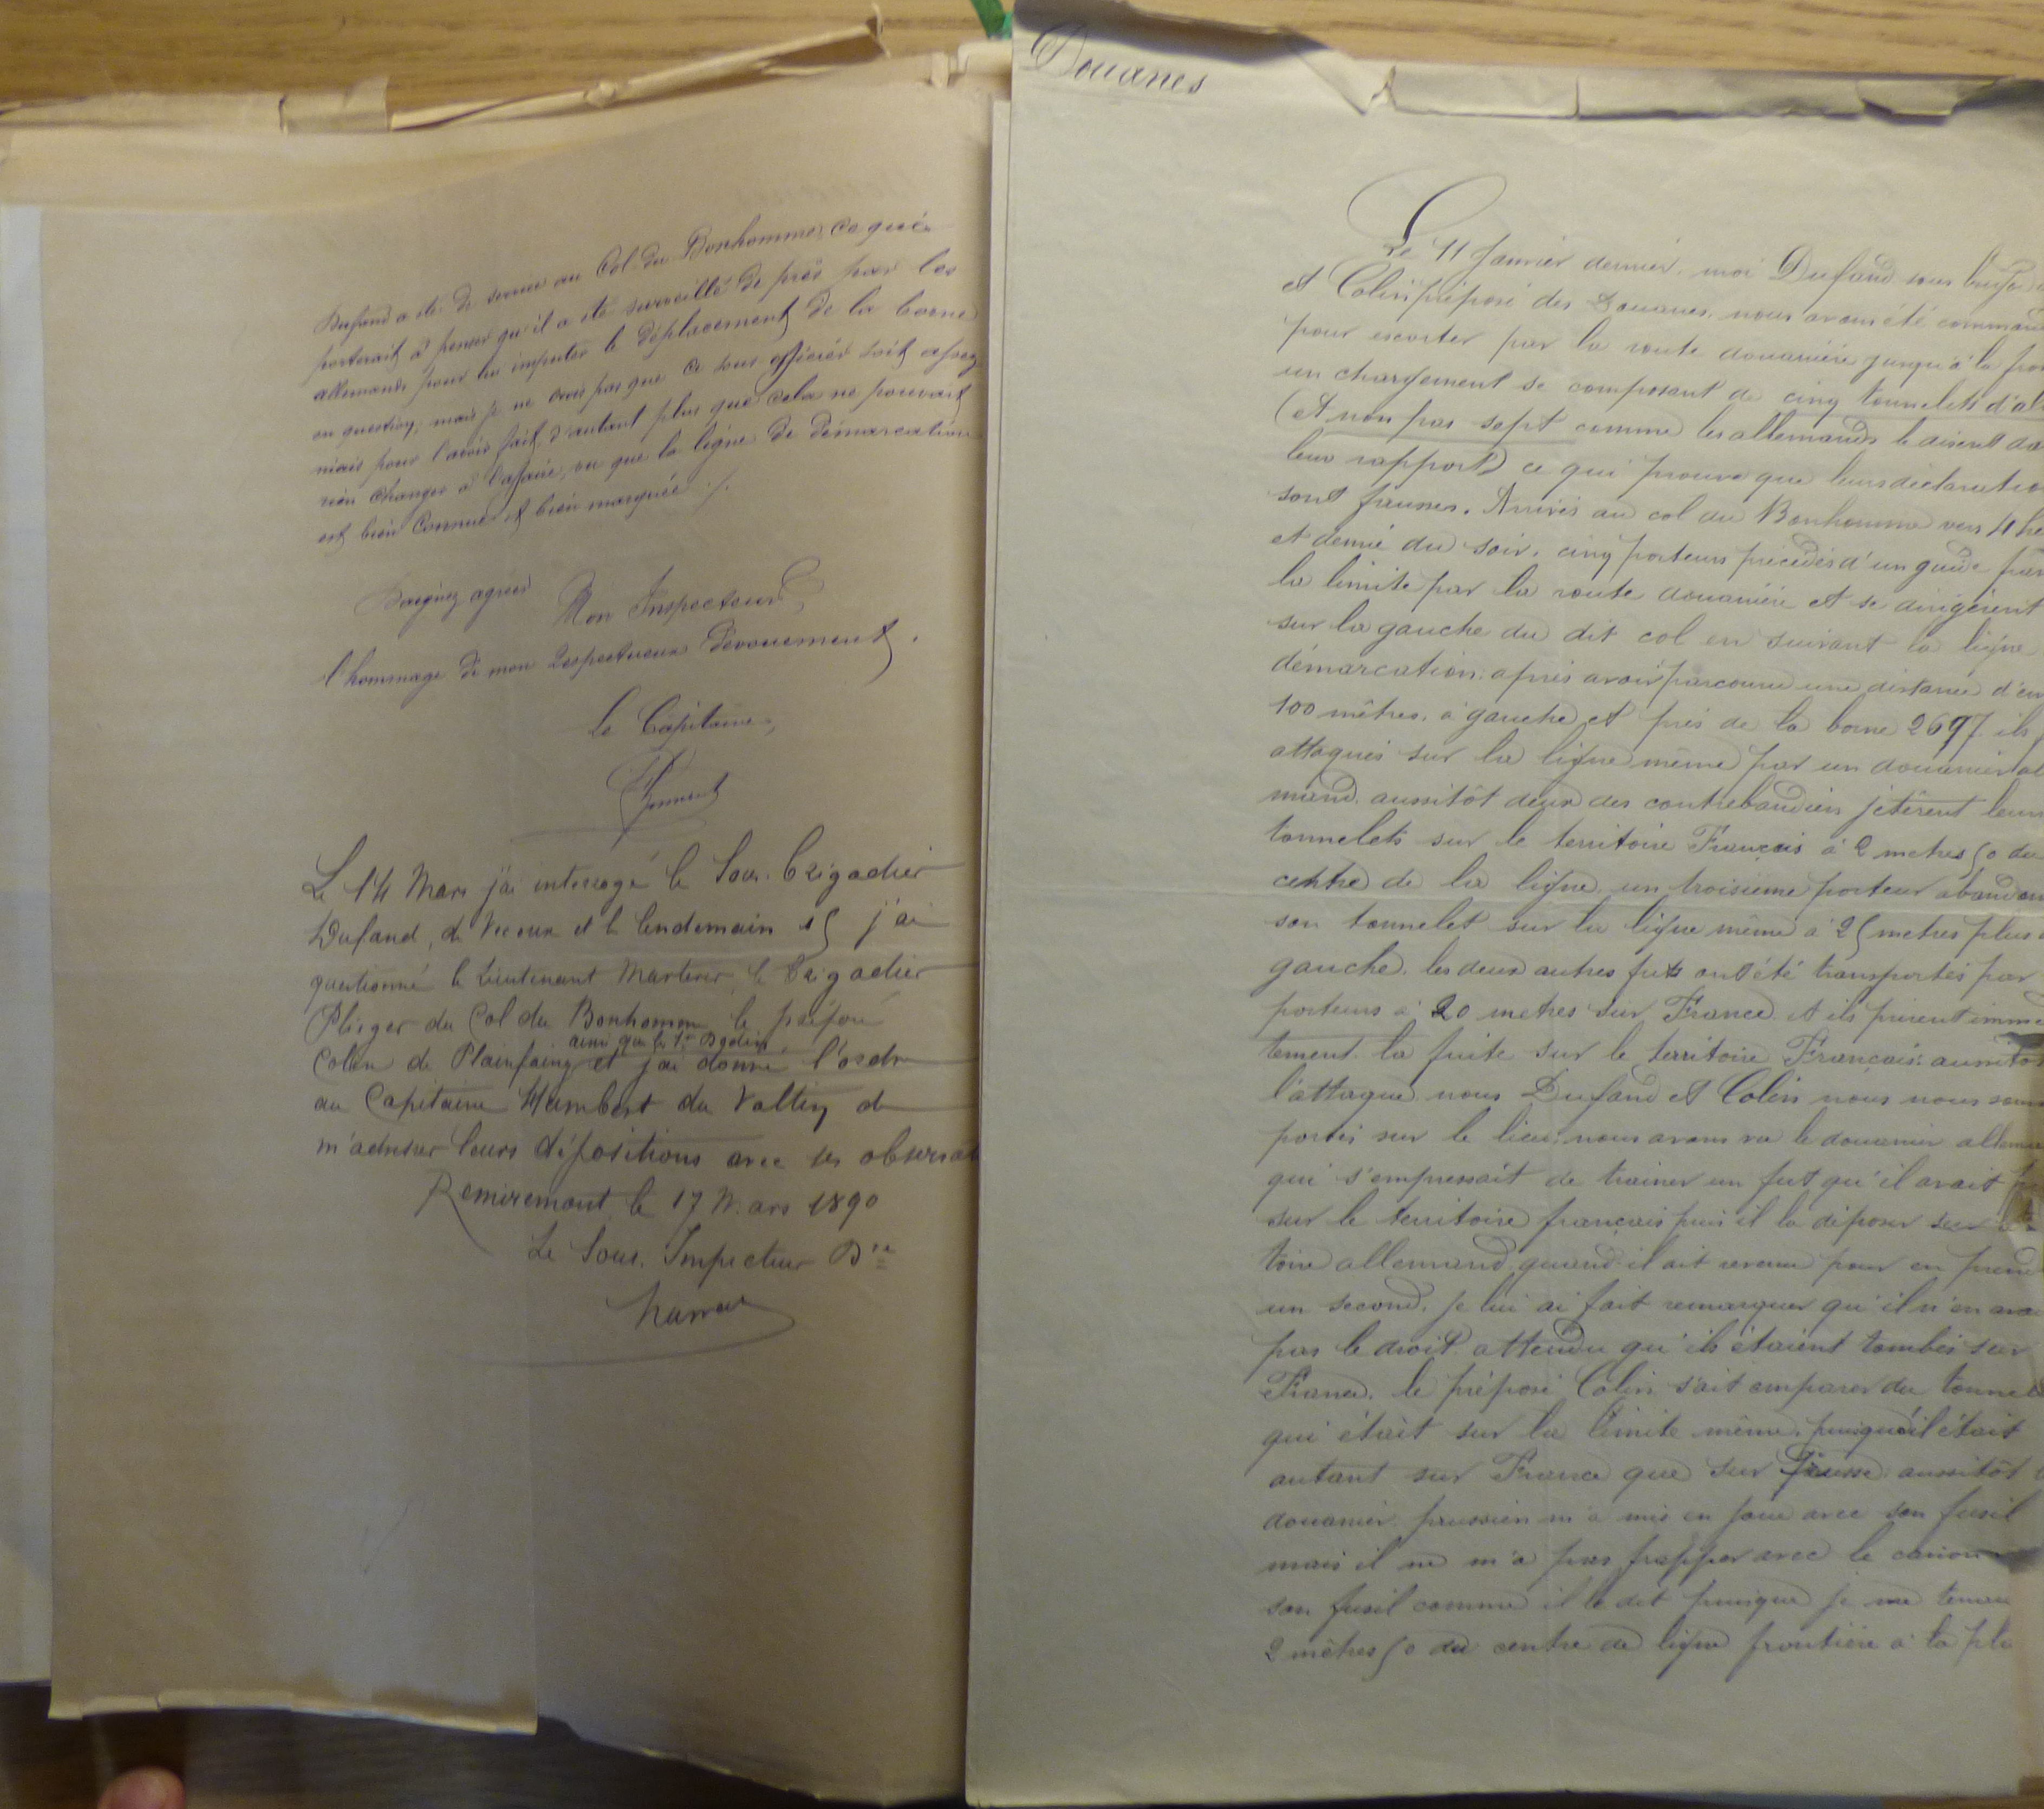 Dufand a été de service au Col du Bonhomme, ce qui
porterait à penser qu'il a été surveillé de près par les
allemands pour lui imputer le déplacement de la borne
en question; mais je ne crois pas que ce sous officier soit assez
niais pour l'avoir fait, d'autant plus que cela ne pouvait
rien changer à l'affaire, vu que la ligne de démarcation
est bien connue et bien marquée ./.
Daignez agréer
Mon Inspecteur,
l'hommage de mon respectueux dévouement.
le Capitaine,
Le 14 Mars j'ai interrogé le Sous. brigadier
Dufand, de Vecoux et le lendemain 15 j'ai
questionné le Lieutenant Marterer, le brigadier
Plieger du Col du Bonhomme, le préposé
ainsi que le
Colin de Plainfaing et j'ai donné l'ordre
au Capitaine Humbert du Valtin de
m'adresser leurs dépositions avec ses observat
Remiremont, le 17 Mars 1890
Le Sous. Inspecteur Dre
Douanes
Le 11 Janvier dernier, moi Dufand sous brig
et Colin préposé des Douanes, nous avons été command
pour escorter par la route douanière jusqu'à la fron
un chargement se composant de cinq tonnelets d'al
(et non pas sept comme les allemands le disent da
leur rapport) ce qui prouve que leurs déclaratio
sont fausses. Arrivés au col du Bonhomme vers 4 he
et demie du soir, cinq porteurs précédés d'un guide
la limite par la route douanière et se dirigèrent
sur la gauche du dit col en suivant la ligne
démarcation. après avoir parcouru une distance d'en
100 mètres, à gauche et près de la borne 2697 ils
attaqués sur la ligne même par un douanier al
mand. aussitôt deux des contrebandiers jetèrent leurs
tonnelets sur le territoire Français à 2 metres 50 du
centre de la ligne, un troisième porteur abandon
son tonnelet sur la ligne même à 25 metres plus
gauche. les deux autres futs ont été transportés par
porteurs à 20 metres sur France et ils prirent immé
tement la fuite sur le territoire Français. aussitôt
l'attaque nous Dufand et Colin nous nous som
portés sur le lieu, nous avons vu le douanier allema
qui s'empressait de trainer un fut qu'il avait
sur le territoire français puis il la déposer sur
toire allemand. quand il ait revenu pour en prend
un second, je lui ai fait remarquer qu'il n'en ava
pas le droit attendu qu'ils étaient tombés sur
France. le préposé Colin s'ait emparer du tonnel
qui était sur la limite même, puisqu'il était
autant sur France que sur Prusse. aussitôt
douanier prussien m'a mis en joue avec son fusil
mais il ne m'a pas frapper avec le canon
son fusil comme il le dit puisque je me tenai
2 mètres 50 du centre de ligne frontière à la pla